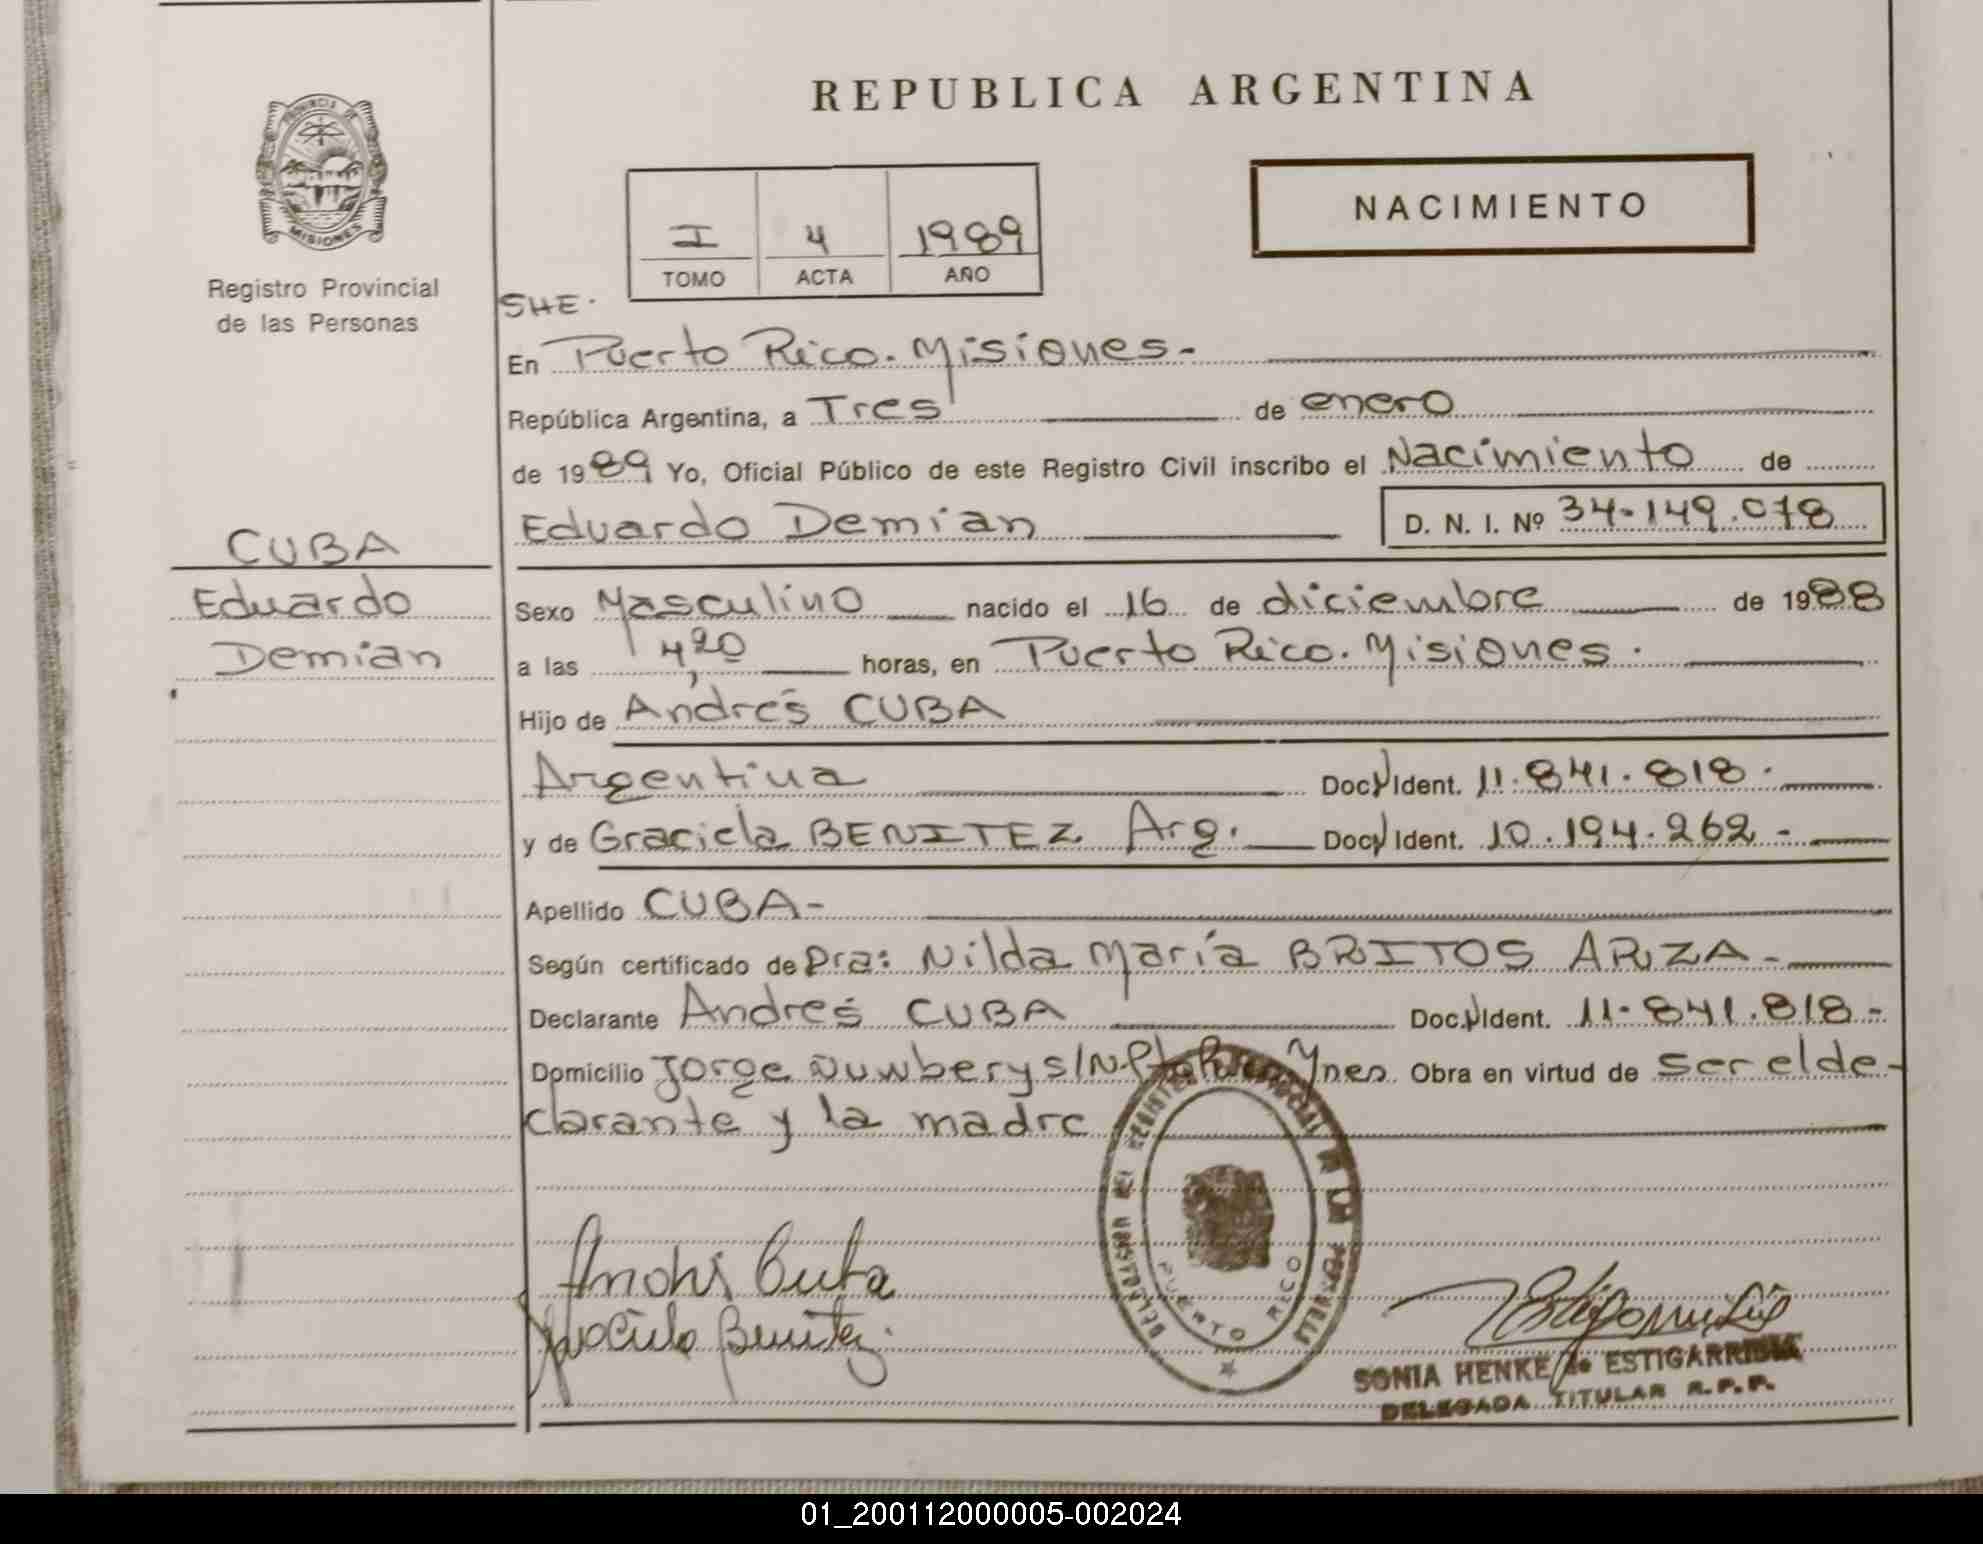 REPUBLICA ARGENTINA
PROVINCIA DE
MISIONES
Registro Provincial
de las Personas
NACIMIENTO
I 4 1989
TOMO ACTA AÑO
SHE.
En Puerto Rico. Misiones-
República Argentina, a Tres de enero
de 1989 Yo, Oficial Público de este Registro Civil inscribo el Nacimiento de
Eduardo Demian D. N. I. Nº 34-149.078
CUBA
Eduardo
Demian
Sexo Masculino nacido el 16 de diciembre de 1988
a las 4,20 horas, en Puerto Rico. Misiones.
Hijo de Andrés CUBA
Argentina Doc. Ident. 11.841.818.
y de Graciela BENITEZ Arg. Doc. Ident. 10.194.262-
Apellido CUBA-
Según certificado de Dra: Nilda María BRITOS ARZA-
Declarante Andrés CUBA Doc. Ident. 11-841.818-
Domicilio Jorge Nuwbery s/N-Pto Rico Mnes. Obra en virtud de ser el de-
clarante y la madre
Andrés Cuba
Graciela Benitez.
PUERTO RICO
SONIA HENKE de ESTIGARRIBIA
DELEGADA TITULAR R.P.P.
01_200112000005-002024